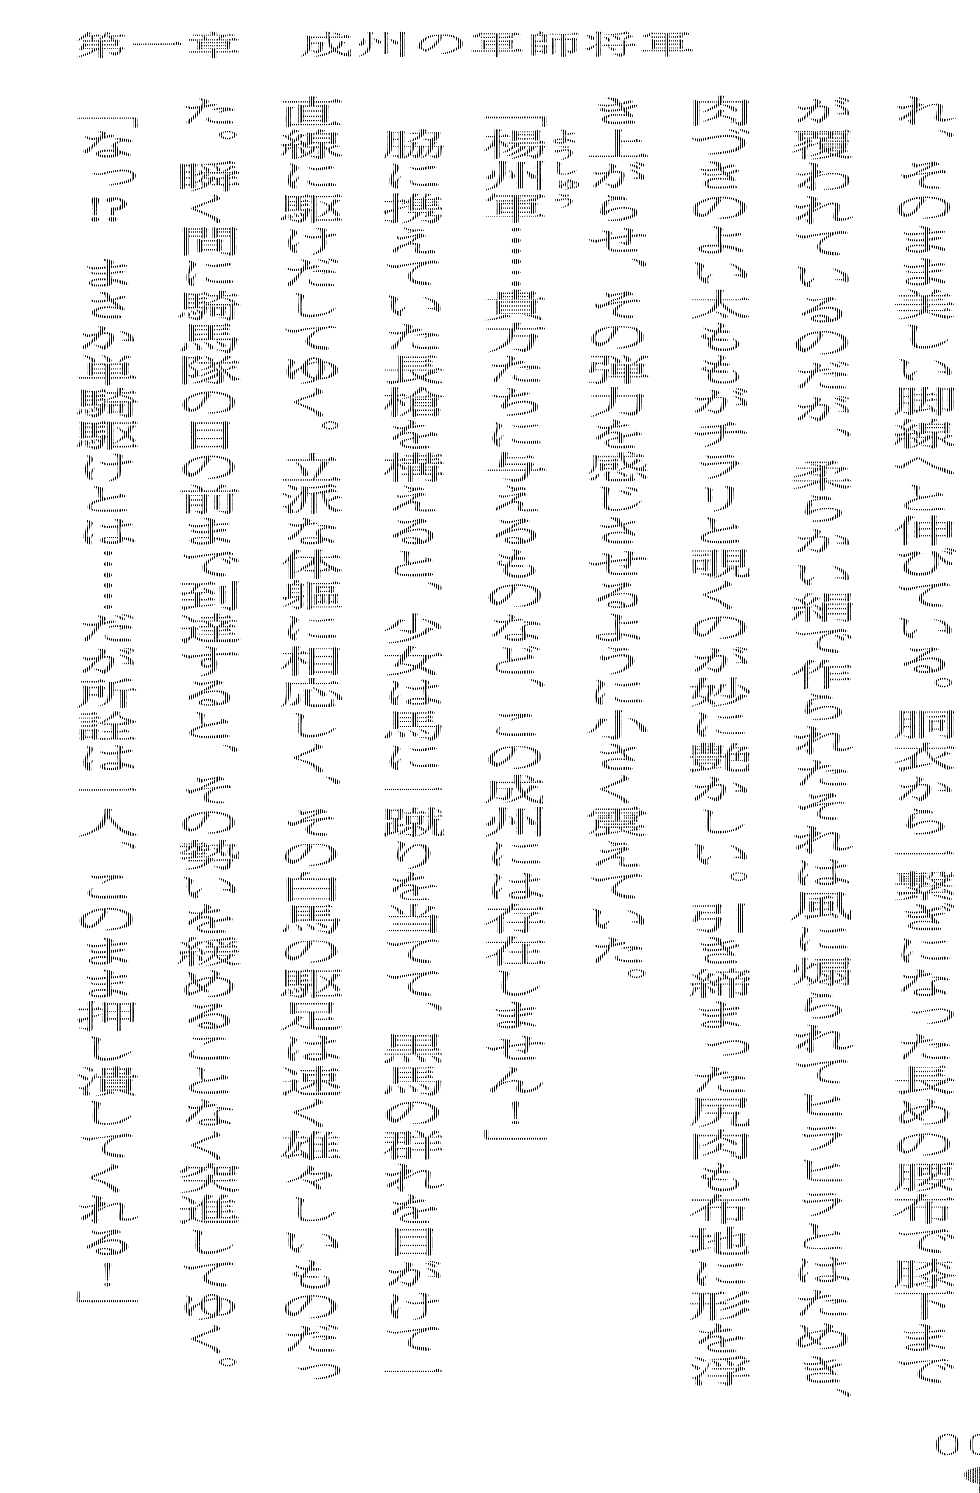 第一章　成州の軍師将軍
れ、そのまま美しい脚線へと伸びている。胴衣から一繋ぎになった長めの腰布で膝下まで
が覆われているのだが、柔らかい絹で作られたそれは風に煽られてヒラヒラとはためき、
肉づきのよい太ももがチラリと覗くのが妙に艶かしい。引き締まった尻肉も布地に形を浮
き上がらせ、その弾力を感じさせるように小さく震えていた。
「楊州軍……貴方たちに与えるものなど、この成州には存在しません！」
ようしゅう
　脇に携えていた長槍を構えると、少女は馬に一蹴りを当てて、黒馬の群れを目がけて一
直線に駆けだしてゆく。立派な体軀に相応しく、その白馬の駆足は速く雄々しいものだっ
た。瞬く間に騎馬隊の目の前まで到達すると、その勢いを緩めることなく突進してゆく。
「なっ!?　まさか単騎駆けとは……だが所詮は一人、このまま押し潰してくれる！」